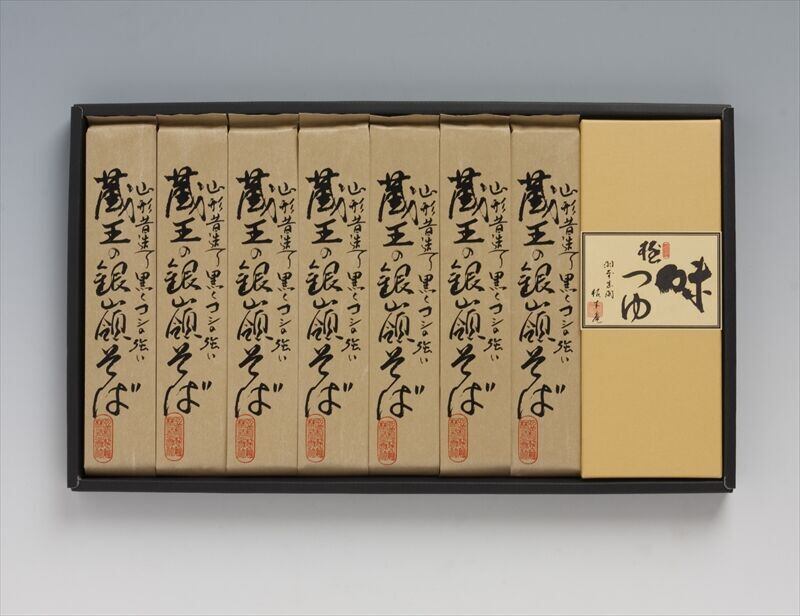 味
つゆ
山形昔造り 黒くコシの強い
蔵王の銀嶺そば
山形昔造り 黒くコシの強い
蔵王の銀嶺そば
山形昔造り 黒くコシの強い
蔵王の銀嶺そば
山形昔造り 黒くコシの強い
蔵王の銀嶺そば
山形昔造り 黒くコシの強い
蔵王の銀嶺そば
山形昔造り 黒くコシの強い
蔵王の銀嶺そば
山形昔造り 黒くコシの強い
蔵王の銀嶺そば